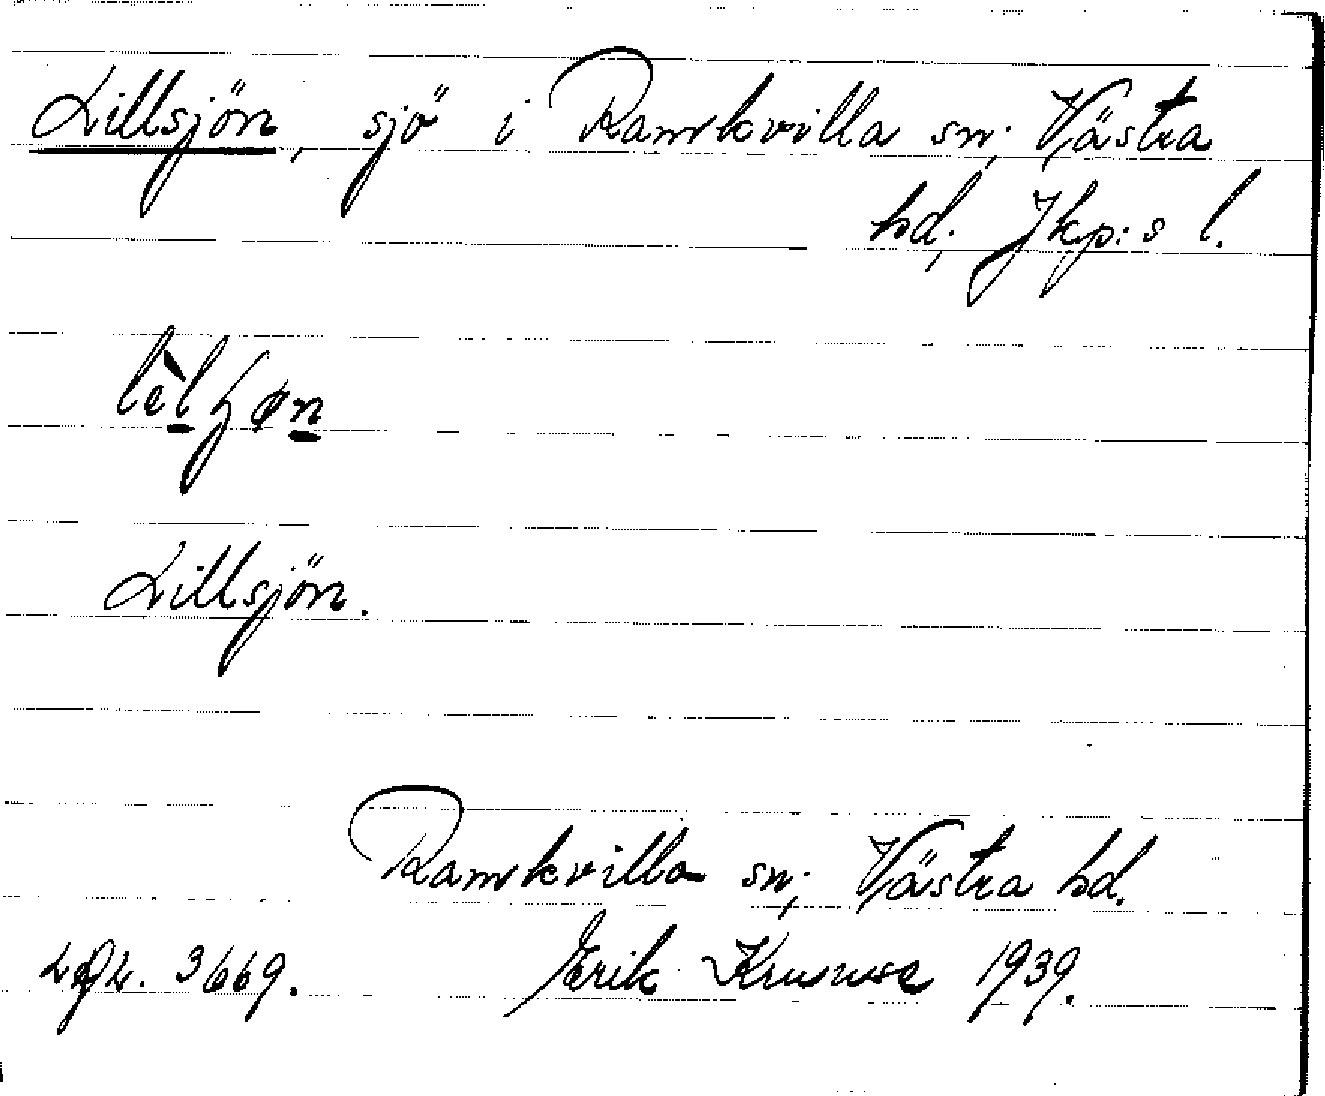 Lillsjön, sjö i Ramkvilla sn; Västra
hd; Jkp:s l.
Lillsjön.
Ramkvilla sn; Västra hd.
3669. Erik Krususe 1939.